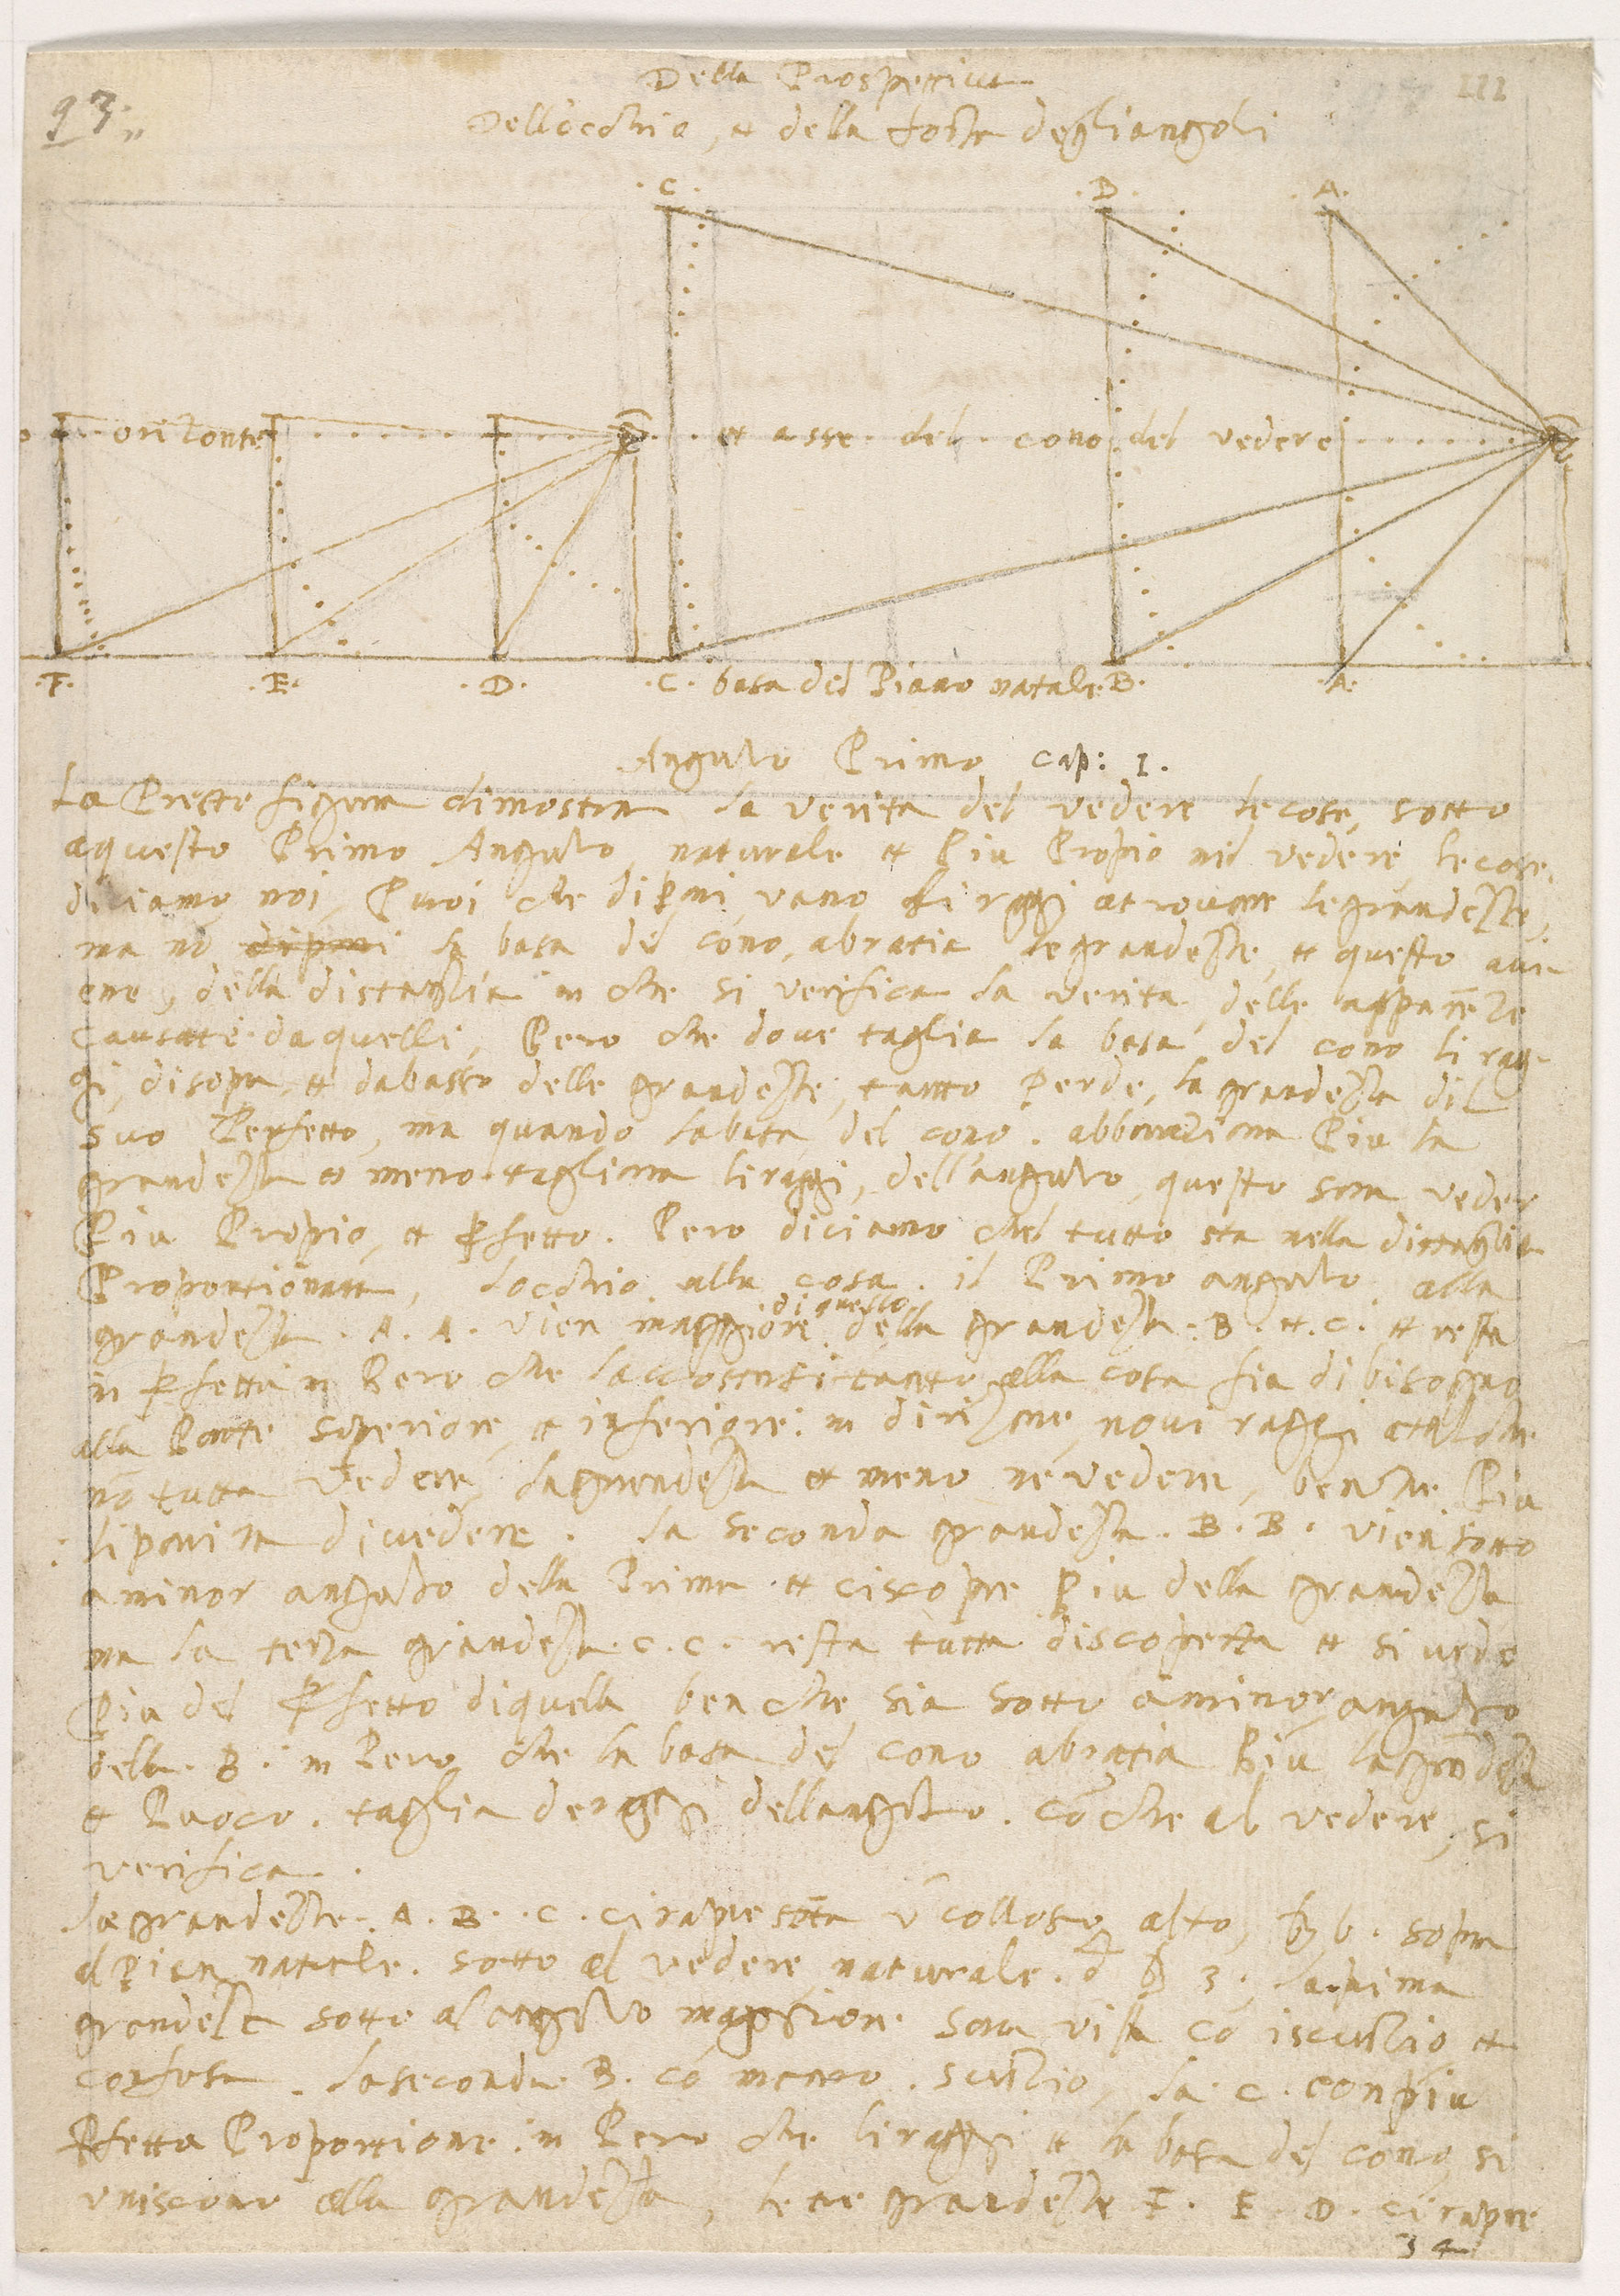 Della Prospettiva
III
93
Dell'occhio, et della forza degliangoli
.C. .B. .A.
orizonte et asse del cono del vedere
.F. .E. .D. .C. basa del Piano natale .B. .A.
Angulo Primo cap: 1.
La Prette figura dimostra la verita del vedere le cose, sotto
aquesto Primo Angulo, naturale et Piu Propio nel vedere, le cose.
diciamo noi, Puoi che di pōi, vano li raggi atrovare le grandezze,
ma nō la basa del cono, abratia le grandezze, et questo avi
ene, della distaglia in che si verifica la verita, delle apparēze
causate da quelle, Pero che dove taglia la basa del cono li rag-
gi, disopra, et dabasso delle grandezze, tanto Perde, la grandezza dil
suo Perfetto, ma quando la basa del cono. abbraciara Piu la
grandezza et meno tagliara li raggi, dell'angulo, questo sara veder
Piu Propio, et Pfetto. Pero diciamo chel tutto sta nella distaglia
Proportionata, locchio alla cosa. il Primo angulo alla
grandezza .A.A. vien maggiore di questo della grandezza .B. et .C. et resta
in Pfetta in Pero che laccostarsi tanto alla cosa fia di bisogno
alla Parte superiore, et inferiore in dirizare, novi raggi atalche
nō tutta vedere, la grandezza et meno ne vedera, benche Piu
li parira di vedere. la seconda grandezza .B.B. vien sotto
a minor angulo della Prima et ciscopre Piu della grandezza
ma la terza grandezza .C.C. resta tutta discoperta et si vede
Piu del Pfetto di quella ben che sia sotto a minor angulo
della .B. in Pero che la basa del cono abratia Piu la grādezza
et Puoco. taglia de raggi dellangulo. cō che al vedere, si
verifica.
Le grandezze .A.B.C. ci rapresēta ū collosso alto, 6. sopra
al pian natale. sotto al vedere naturale. 3. la prima
grandezza sotto al angulo maggiore sara vista cō iscurtio et
confusa. la seconda .B. cō meno. scurtio, la .C. con piu
Pfetta Proportione. in Pero che li raggi et la basa del cono si
uniscono alla grandezza, le tre grandezze F. E. D. ci rapre
34